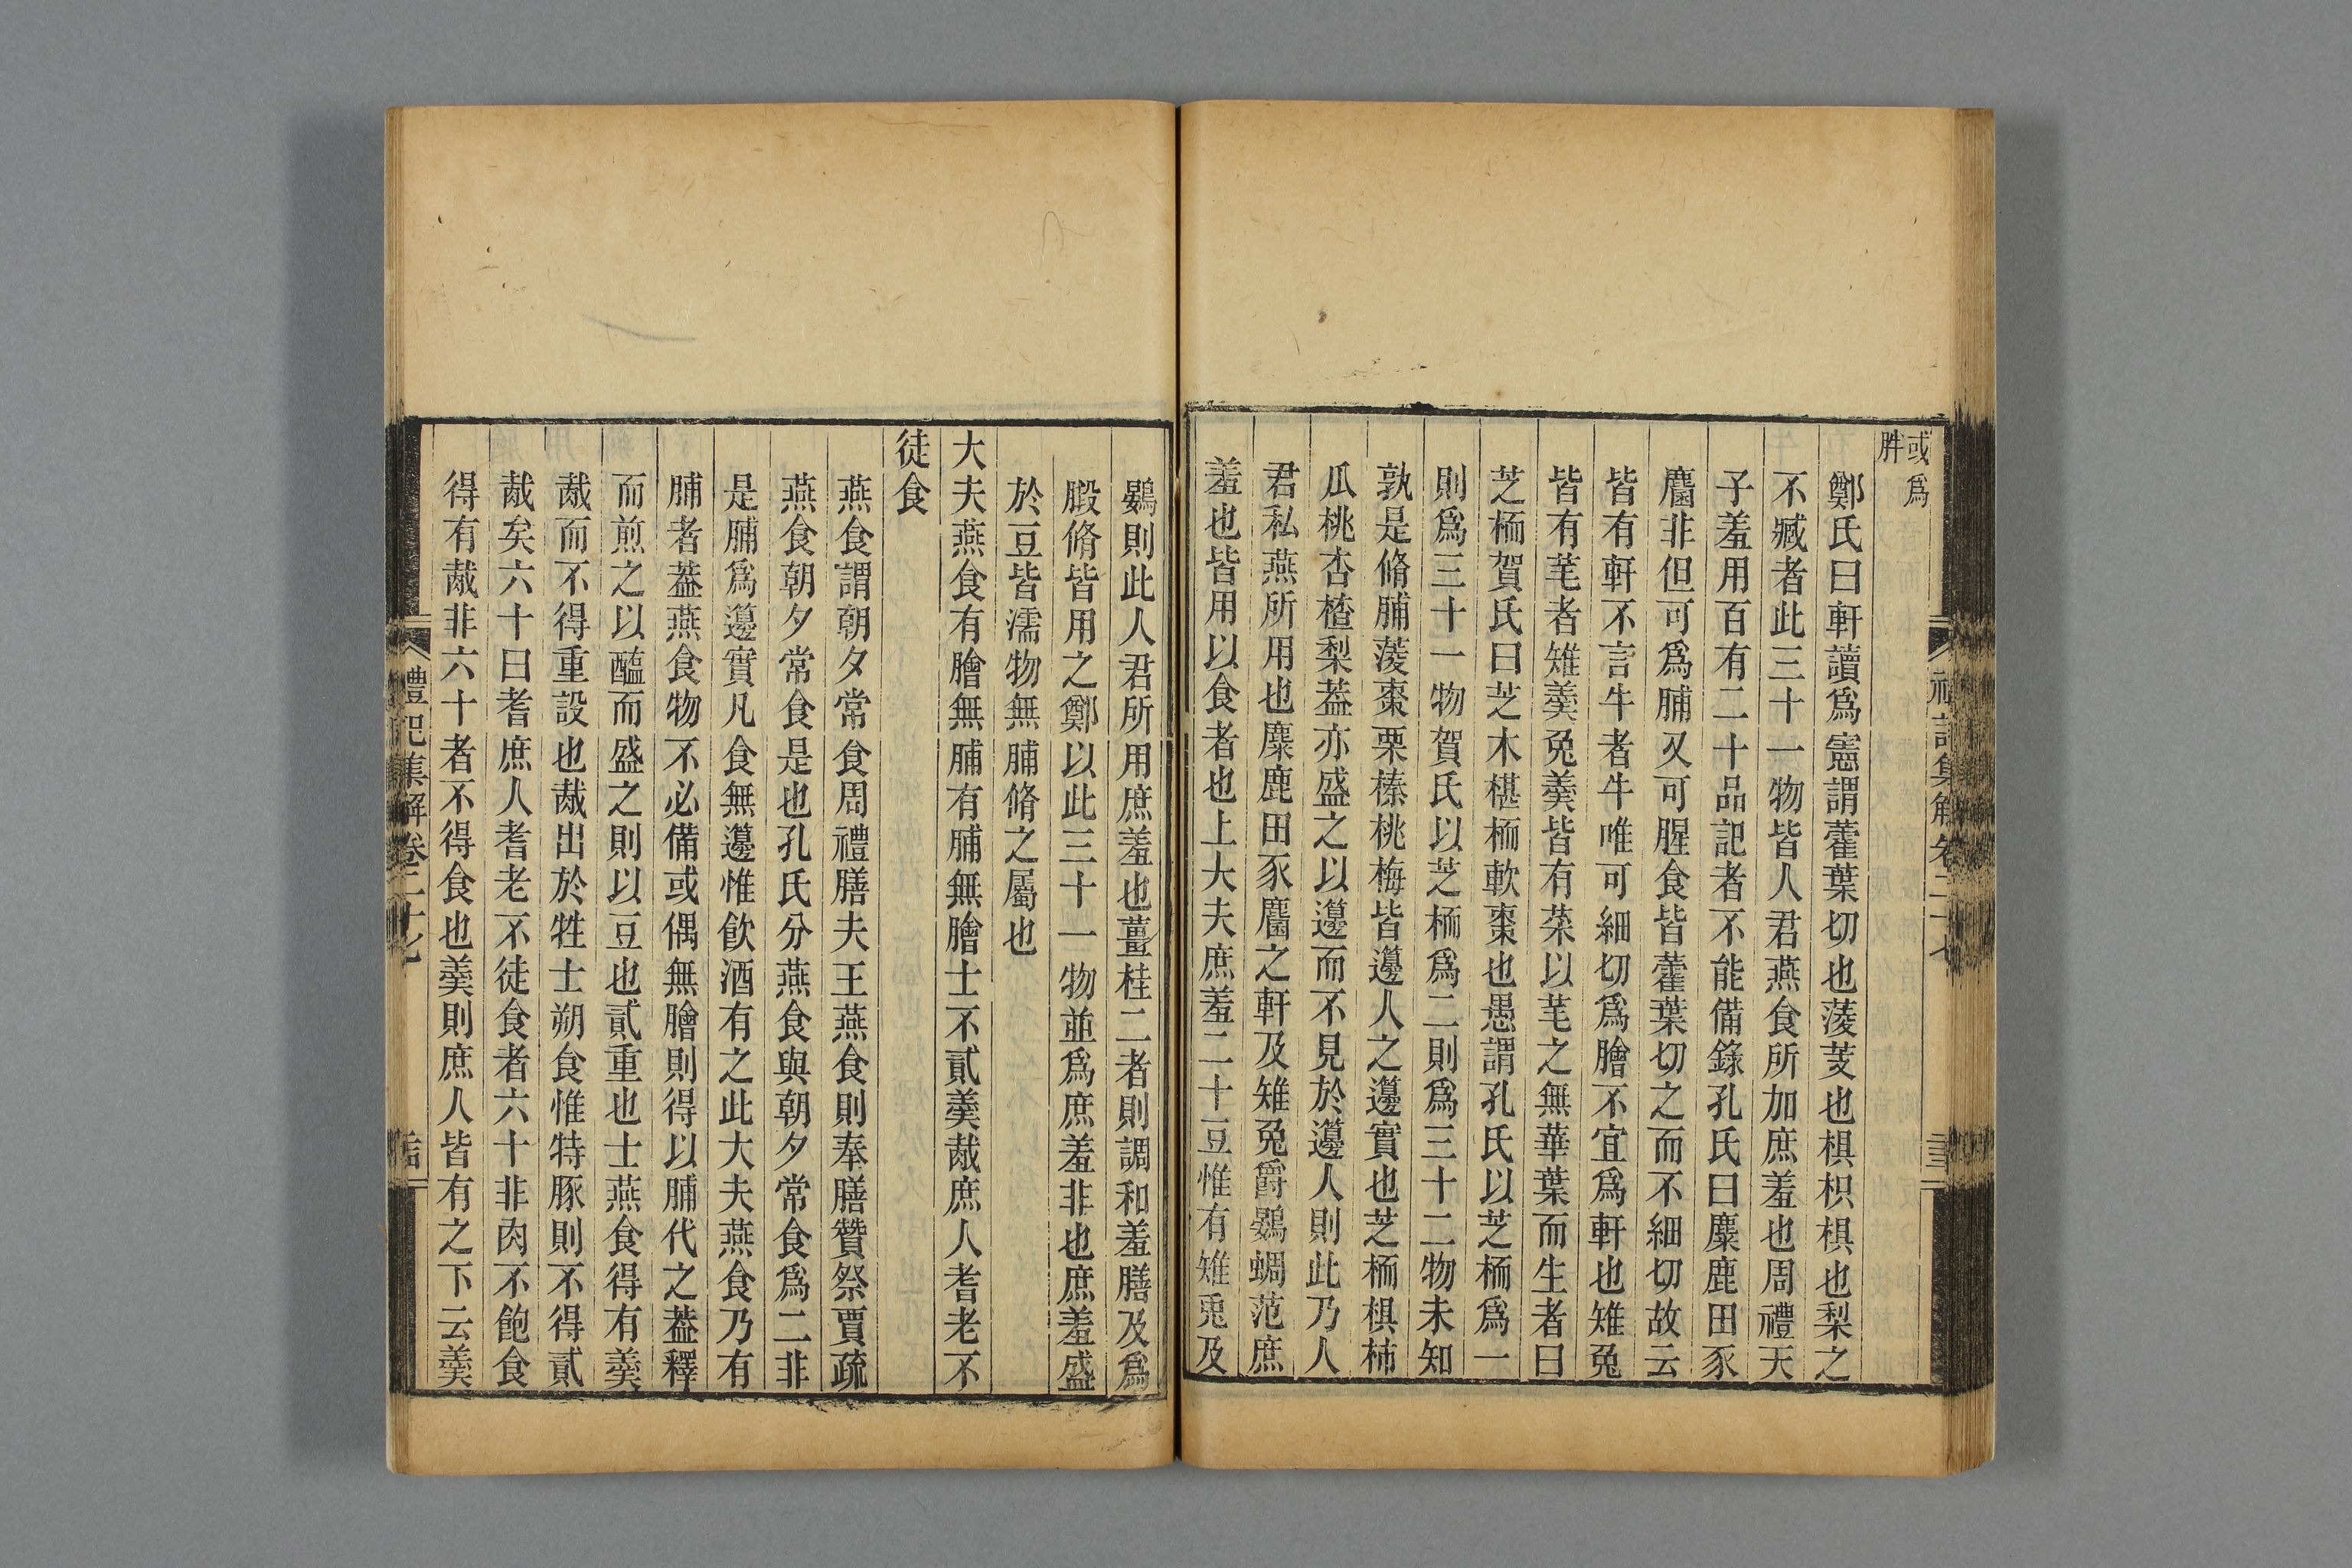 禮記集解卷二十七
或爲
胖
鄭氏曰軒讀爲憲謂藿葉切也蔆芰也椇枳椇也梨之
不臧者此三十一物皆人君燕食所加庶羞也周禮天
子羞用百有二十品記者不能備錄孔氏曰麋鹿田豕
麕非但可爲脯又可腥食皆藿葉切之而不細切故云
皆有軒不言牛者牛唯可細切爲膾不宜爲軒也雉兔
皆有芼者雉羮兔羮皆有菜以芼之無華葉而生者曰
芝栭賀氏曰芝木椹栭軟棗也愚謂孔氏以芝栭爲一
則爲三十一物賀氏以芝栭爲二則爲三十二物未知
孰是脩脯蔆棗栗榛桃梅皆籩人之籩實也芝栭椇柿
瓜桃杏楂梨葢亦盛之以籩而不見於籩人則此乃人
君私燕所用也麋鹿田豕麕之軒及雉兔爵鷃蜩范庶
羞也皆用以食者也上大夫庶羞二十豆惟有雉兎及
鷃則此人君所用庶羞也薑桂二者則調和羞膳及爲
腶脩皆用之鄭以此三十一物並爲庶羞非也庶羞盛
於豆皆濡物無脯脩之屬也
大夫燕食有膾無脯有脯無膾士不貳羮胾庶人耆老不
徒食
燕食謂朝夕常食周禮膳夫王燕食則奉膳贊祭賈疏
燕食朝夕常食是也孔氏分燕食與朝夕常食爲二非
是脯爲籩實凡食無籩惟飮酒有之此大夫燕食乃有
脯者葢燕食物不必備或偶無膾則得以脯代之葢釋
而煎之以醢而盛之則以豆也貳重也士燕食得有羮
胾而不得重設也胾出於牲士朔食惟特豚則不得貳
胾矣六十曰耆庶人耆老不徒食者六十非肉不飽食
得有胾非六十者不得食也羮則庶人皆有之下云羮
禮記集解卷二十七